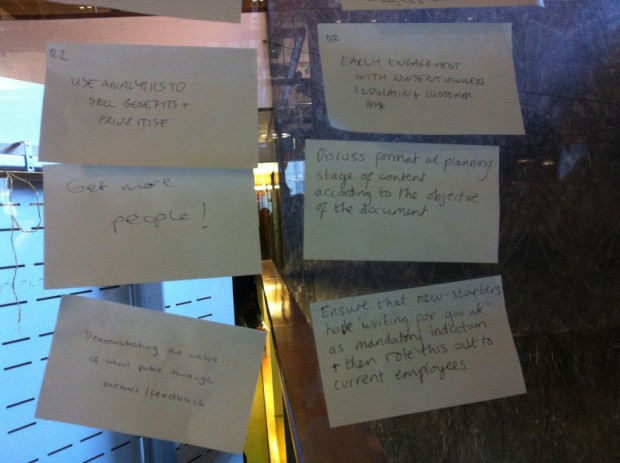 Q2
USE ANALYTICS TO
SELL BENEFITS +
PRIORITISE
Get more
people!
Demonstrating the value
of html pubs through
metrics / feedback
Q2
EARLY ENGAGEMENT
WITH CONTENT OWNERS
CUSTOMER
Discuss format at planning
stage of content
according to the objective
of the document
Ensure that new-starters
have "writing for gov.uk"
as mandatory induction
+ then role this out to
current employees